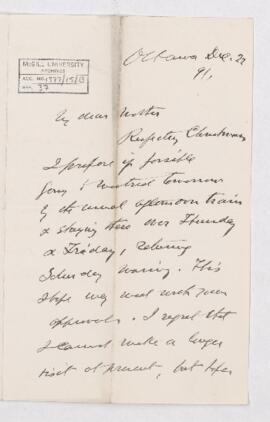 McGILL UNIVERSITY
ARCHIVES
ACC. NO. 1377/15/
37
Ottawa Dec. 22
91,
My dear Mother
Respecting Christmas
I propose if possible
going to Montreal tomorrow
by the usual afternoon train
& staying there over Thursday
& Friday, returning
Saturday morning. This
I hope may meet with your
approval. I regret that
I cannot make a longer
visit at present, but hope